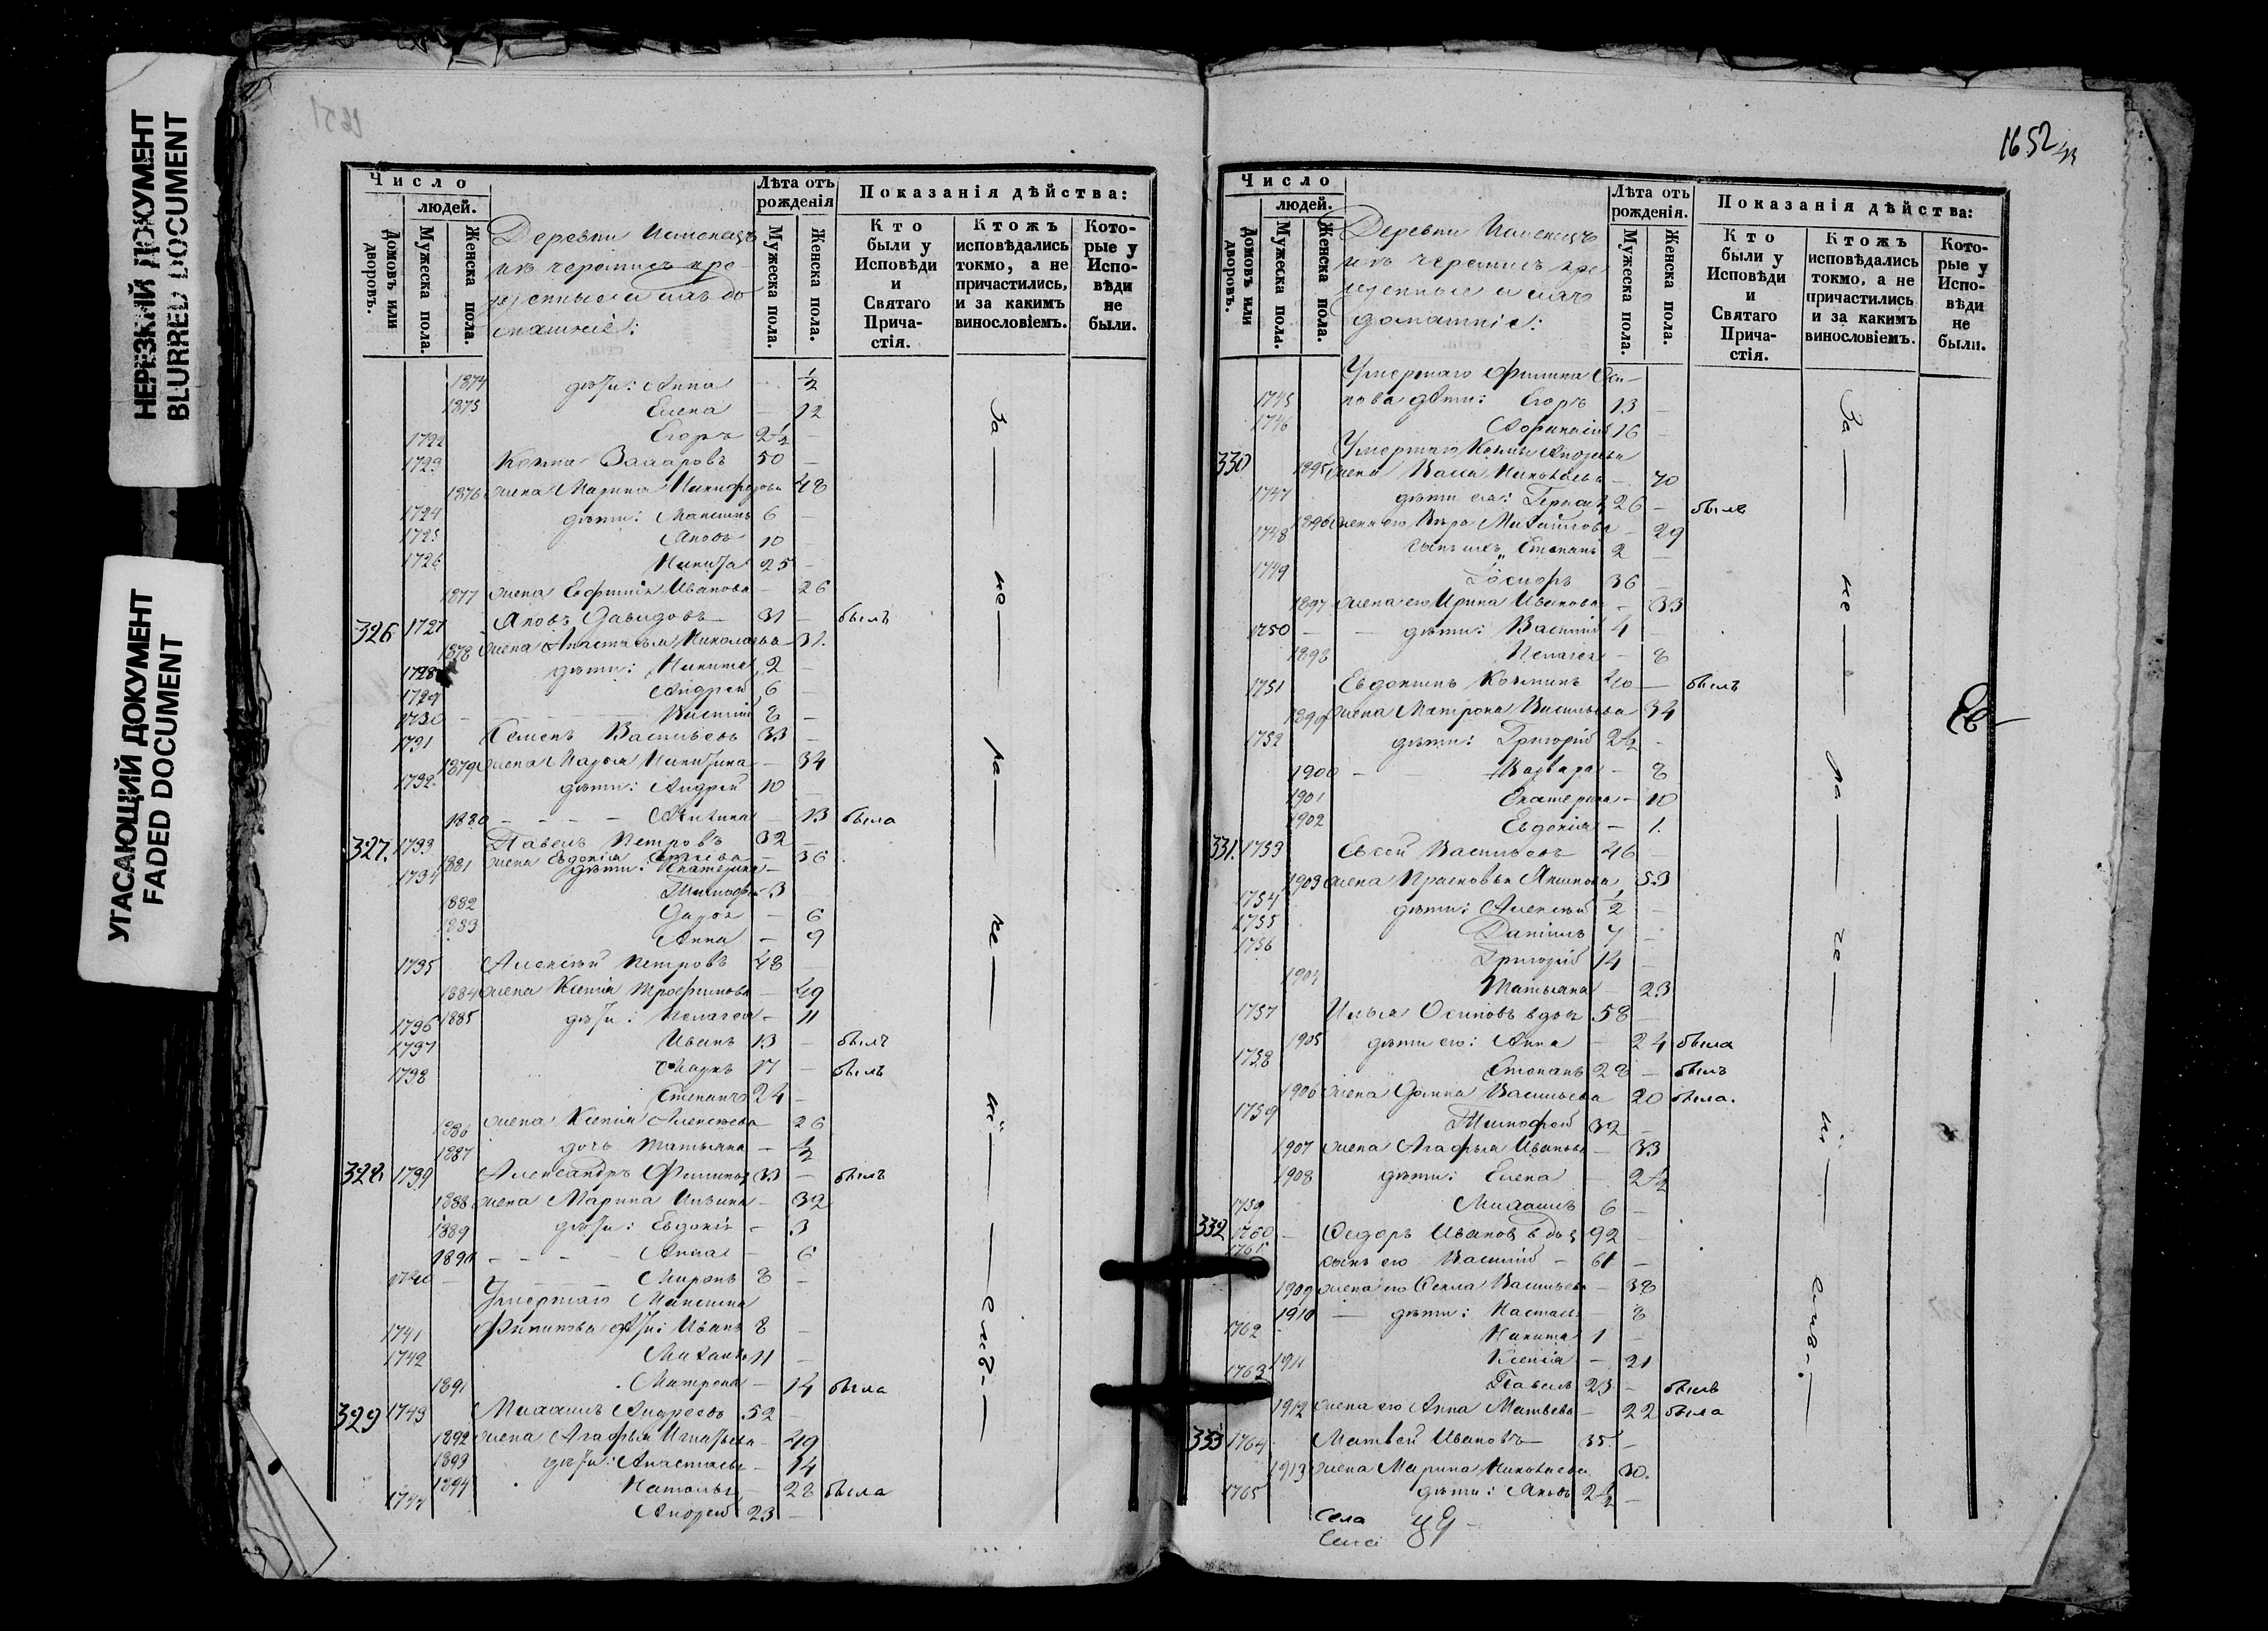 НЕРЕЗКИЙ ДОКУМЕНТ
BLURRED DOCUMENT
УГАСАЮЩИЙ ДОКУМЕНТ
FADED DOCUMENT
Число
людей.
Домовъ или дворовъ.
Мужеска пола.
Женска пола.
Деревни
изъ черемисъ кре-
щенные и ихъ до
машніе:
Лѣта отъ рожденія
Мужеска пола.
Женска пола.
Показанія дѣйства:
Кто были у Исповѣди и Святаго Прича-стія.
Ктожъ исповѣдались токмо, а не причастились, и за какимъ винословіемъ.
Кото-рые у Испо-вѣди не были.
1874 дѣти: Анна ½
1875 Елена – 12
1722 Егоръ 2½ –
1723 Козма Захаровъ 50 –
1876 жена Марина Никифорова 48
1724 дѣти: Максимъ 6 –
1725 Яковъ 10
1726 Никита 25 –
1877 жена Евфимія Иванова – 26
326 1727 Яковъ Давидовъ 31 – былъ
1878 жена Анастасья Николаева 31.
1728 дѣти: Никита 2 –
1729 Андрей 6 –
1730 Василій 8 –
1731 Семенъ Васильевъ 33 –
1879 жена Марья Никитина – 34
1732 дѣти: Андрей 10
1880 Акилина – 13 была
327. 1733 Павелъ Петровъ 32 –
1881 жена Евдокія Сергѣева – 36
1734 дѣти: Екатерина –
Тимофей 3
1882 Дарья – 6
1883 Анна – 9
1735 Алексѣй Петровъ 48
1884 жена Ксенія Трофимова – 49
1736 1885 дѣти: Пелагея – 11
1737 Иванъ 13 – былъ
1738 Маркъ 17 – былъ
Степанъ 24 –
1886 жена Ксенія Алексѣева 26
1887 дочь Татьяна – ½
328. 1739 Александръ Филиповъ 33 – былъ
1888 жена Марина Ильина – 32
1889 дѣти: Евдокія – 3
1890 Анна – 6
1740 Миронъ 8 –
Умершаго Максима
1741 Филипова дѣти: Иванъ 8 –
1742 Михаилъ 11 –
1891 Матрона – 14 была
329 1743 Михаилъ Андреевъ 52 –
1892 жена Агафья Игнатьева – 49
1893 дѣти: Анастасья – 14
1894 Наталья – 28 была
1744 Андрей 23 –
За не ра че ні емъ
1652
Число
людей.
Домовъ или дворовъ.
Мужеска пола.
Женска пола.
Деревни
изъ черемисъ кре
щенные и ихъ
домашніе:
Лѣта отъ рожденія.
Мужеска пола.
Женска пола.
Показанія дѣйства:
Кто были у Исповѣди и Святаго Прича-стія.
Ктожъ исповѣдались токмо, а не причастились и за какимъ винословіемъ.
Кото-рые у Испо-вѣди не были.
Умершаго Филипа Оси-
1745 пова дѣти: Егоръ 13 –
1746 Афанасій 16 –
Умершаго Козмы
330 1895 жена Николаева – 70
1747 дѣти ея: 26 – былъ
1896 жена его Вѣра Михайлова – 29
1748 сынъ ихъ Степанъ 2 –
1749 36 –
1897 жена его Ирина Иванова – 33
1750 – дѣти: Василій 4 –
1898 Пелагея – 8
1751 Евдокимъ Козминъ 40 – былъ
1899 жена Матрона Васильева 34
1752 дѣти: Григорій 2½ –
1900 – Варвара – 8
1901 Екатерина – 10
1902 Евдокія – 1.
331. 1753 Евсей Васильевъ 46 –
1903 жена Прасковья Якимова 53
1754 дѣти: Алексѣй ½ –
1755 Даніилъ 7 –
1756 Григорій 14 –
1904 Татьяна – 23
1757 Илья Осиповъ вдов 58 –
1905 дѣти его: Анна – 24 была
1758 Степанъ 28 – былъ
1906 жена Домна Васильева 20 была.
1759 Тимофей 32 –
1907 жена Агафья Иванова – 33
1908 дѣти: Елена – 2½
1759 Михаилъ 6 –
332 1760 – Ѳедоръ Ивановъ вдов 92 –
1761 сынъ его Василій – 61 –
1909 жена его Ѳекла Васильева – 38
1910 – дѣти: Настасья – 8
1762 Никита 1 –
1911 Ксенія – 21
1763 Павелъ 23 – былъ
1912 жена его Анна Матвѣева – 22 была
333 1764 Матвей Ивановъ 35 –
1913 жена Марина Николаева 30.
1765 дѣти: Яковъ 2½ –
За не ра че ні емъ
Села